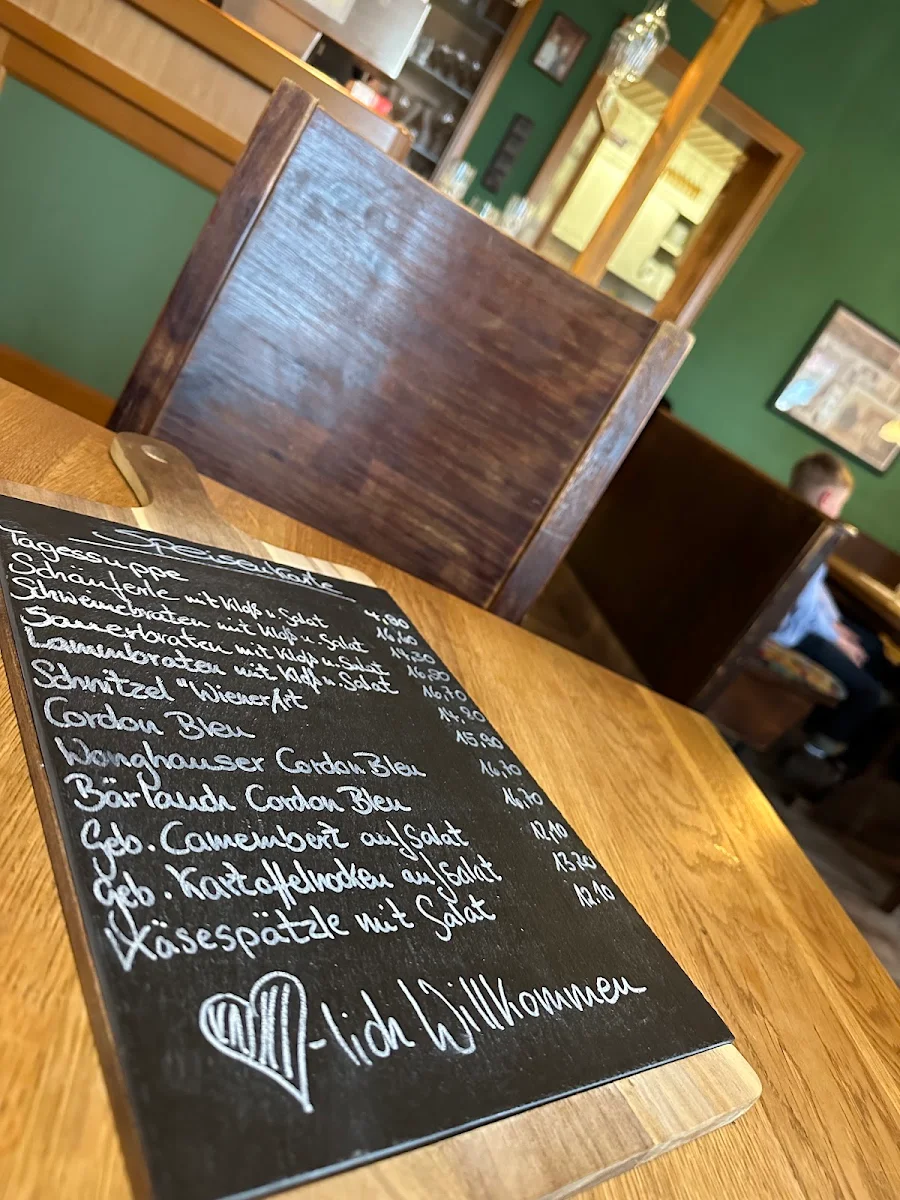 Speisenkarte
Tagessuppe 4,80
Schäuferle mit Kloß u. Salat 16,60
Schweinebraten mit Kloß u. Salat 14,30
Sauerbraten mit Kloß u. Salat 16,20
Lammbraten mit Kloß u. Salat 16,70
Schnitzel "Wiener Art 14,20
Cordon Bleu 15,90
Wonghauser Cordon Bleu 16,70
Bärlauch Cordon Bleu 16,70
Geb. Camembert auf Salat 12,10
Geb. auf Salat 13,20
Käsespätzle mit Salat 12,10
-lich Willkommen